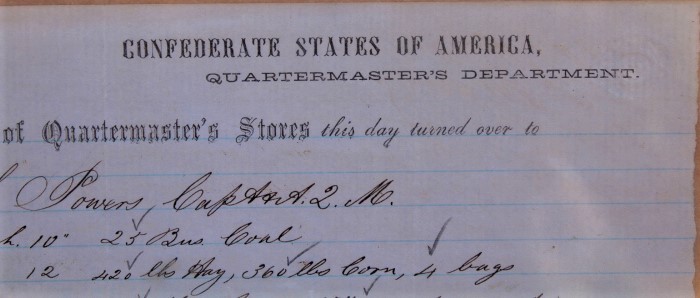 CONFEDERATE STATES OF AMERICA,
QUARTERMASTER'S DEPARTMENT.
of Quartermaster's Stores this day turned over to
Powers, Capt & A. Q. M.
h. 10" 25 Bus. Coal
12 420 lbs Hay, 360 lbs Corn, 4 bags